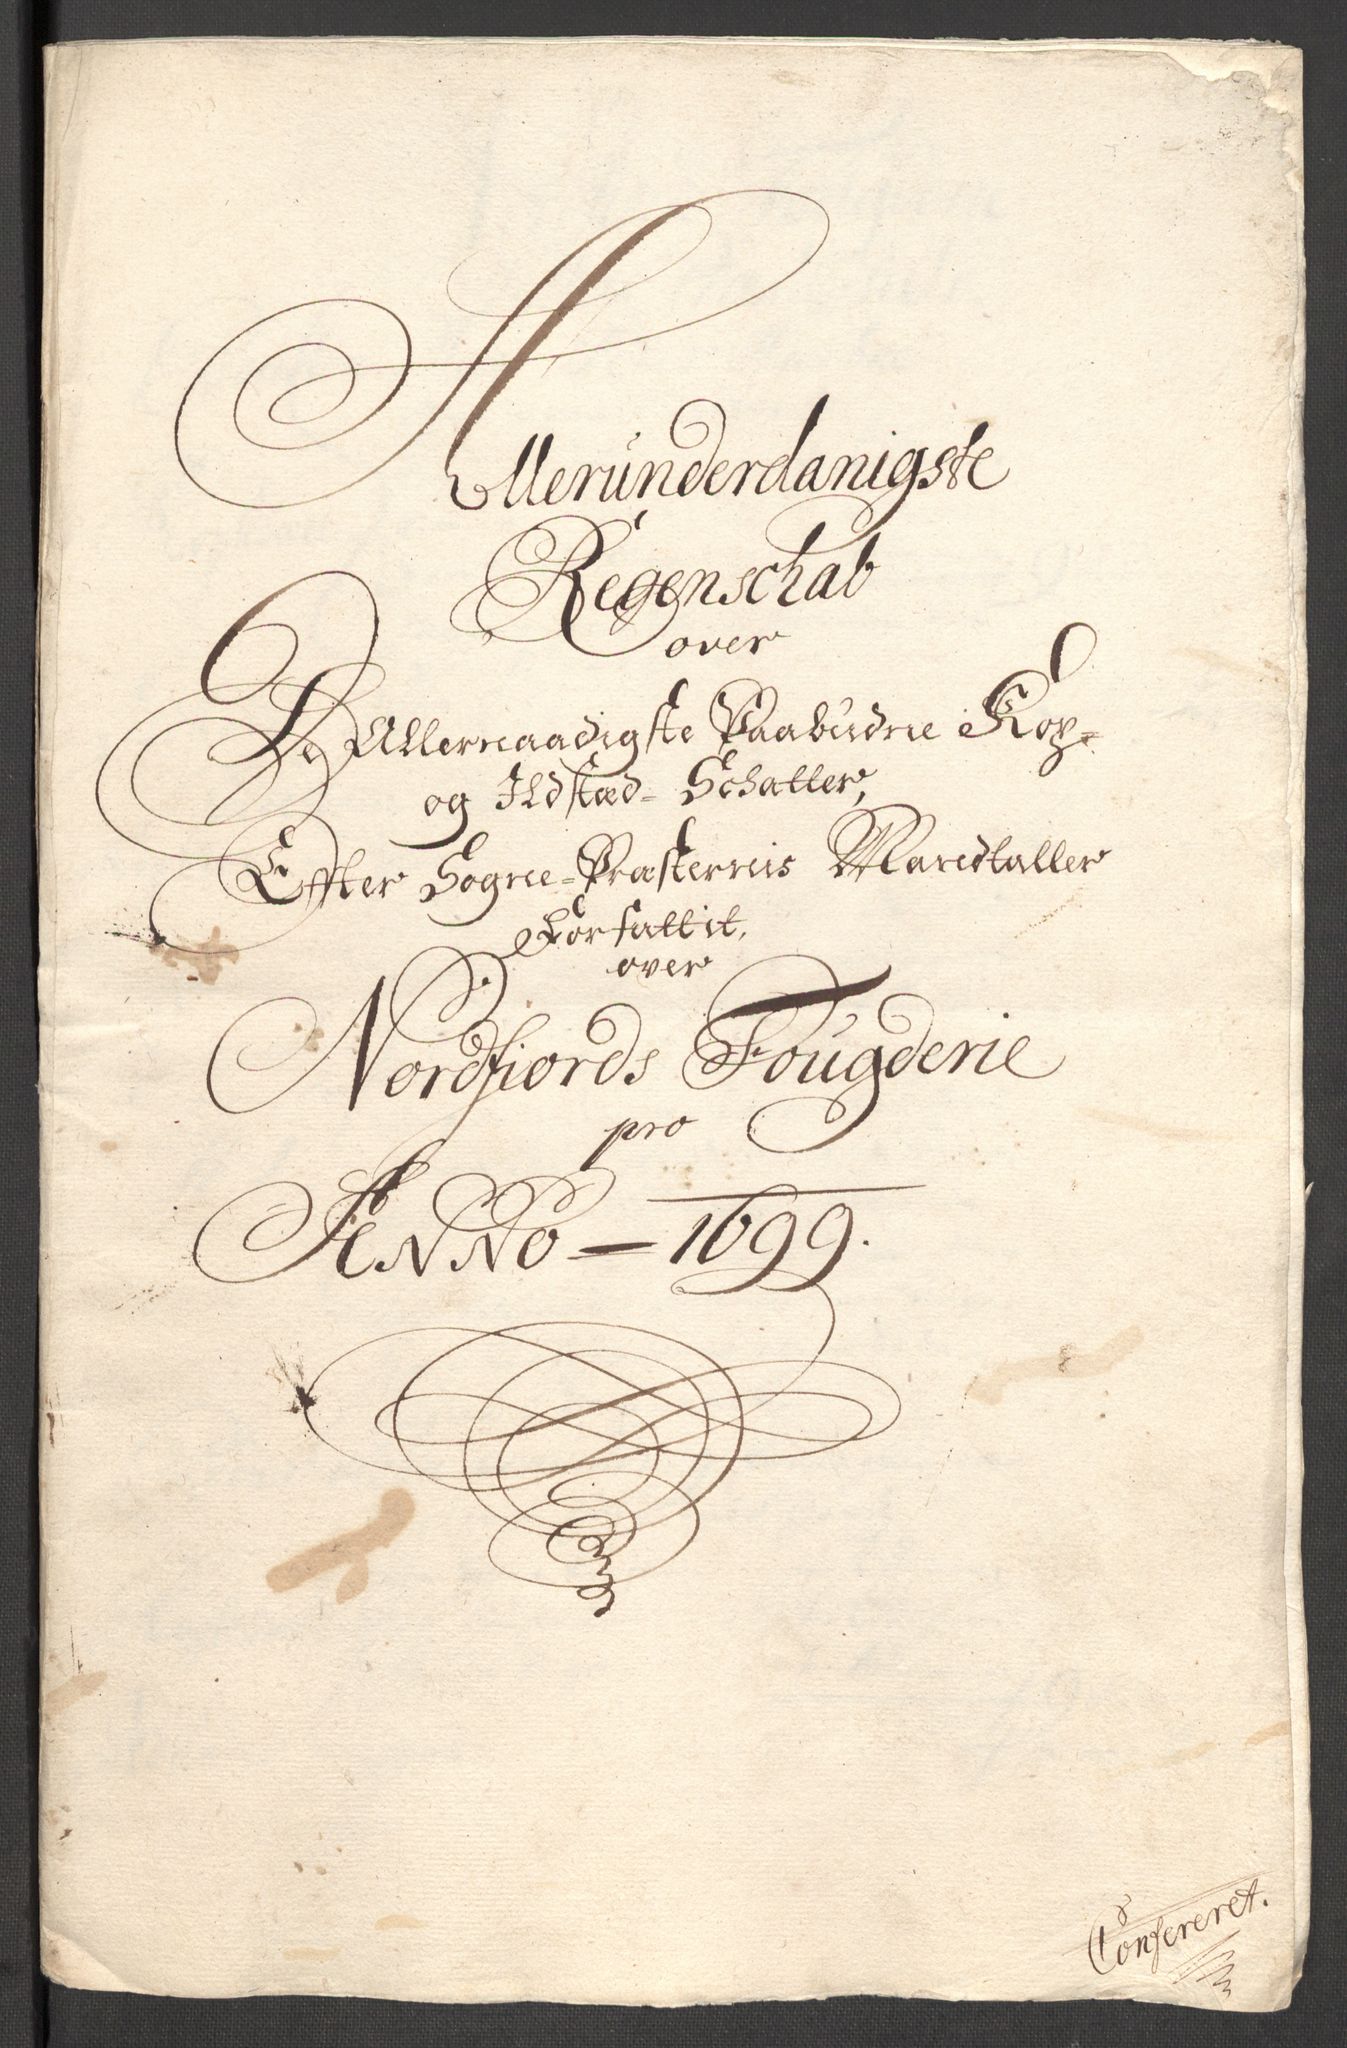 Allerunderdanigste
Regenschab
over
De Allernaadigste Paabudne Kop-
og Ildsted- Schatter,
Effter Sogne-Præsternis Mandtaller
Forfattit,
over
Nordfiords Fougderie
pro
Anno - 1699.
Confereret.